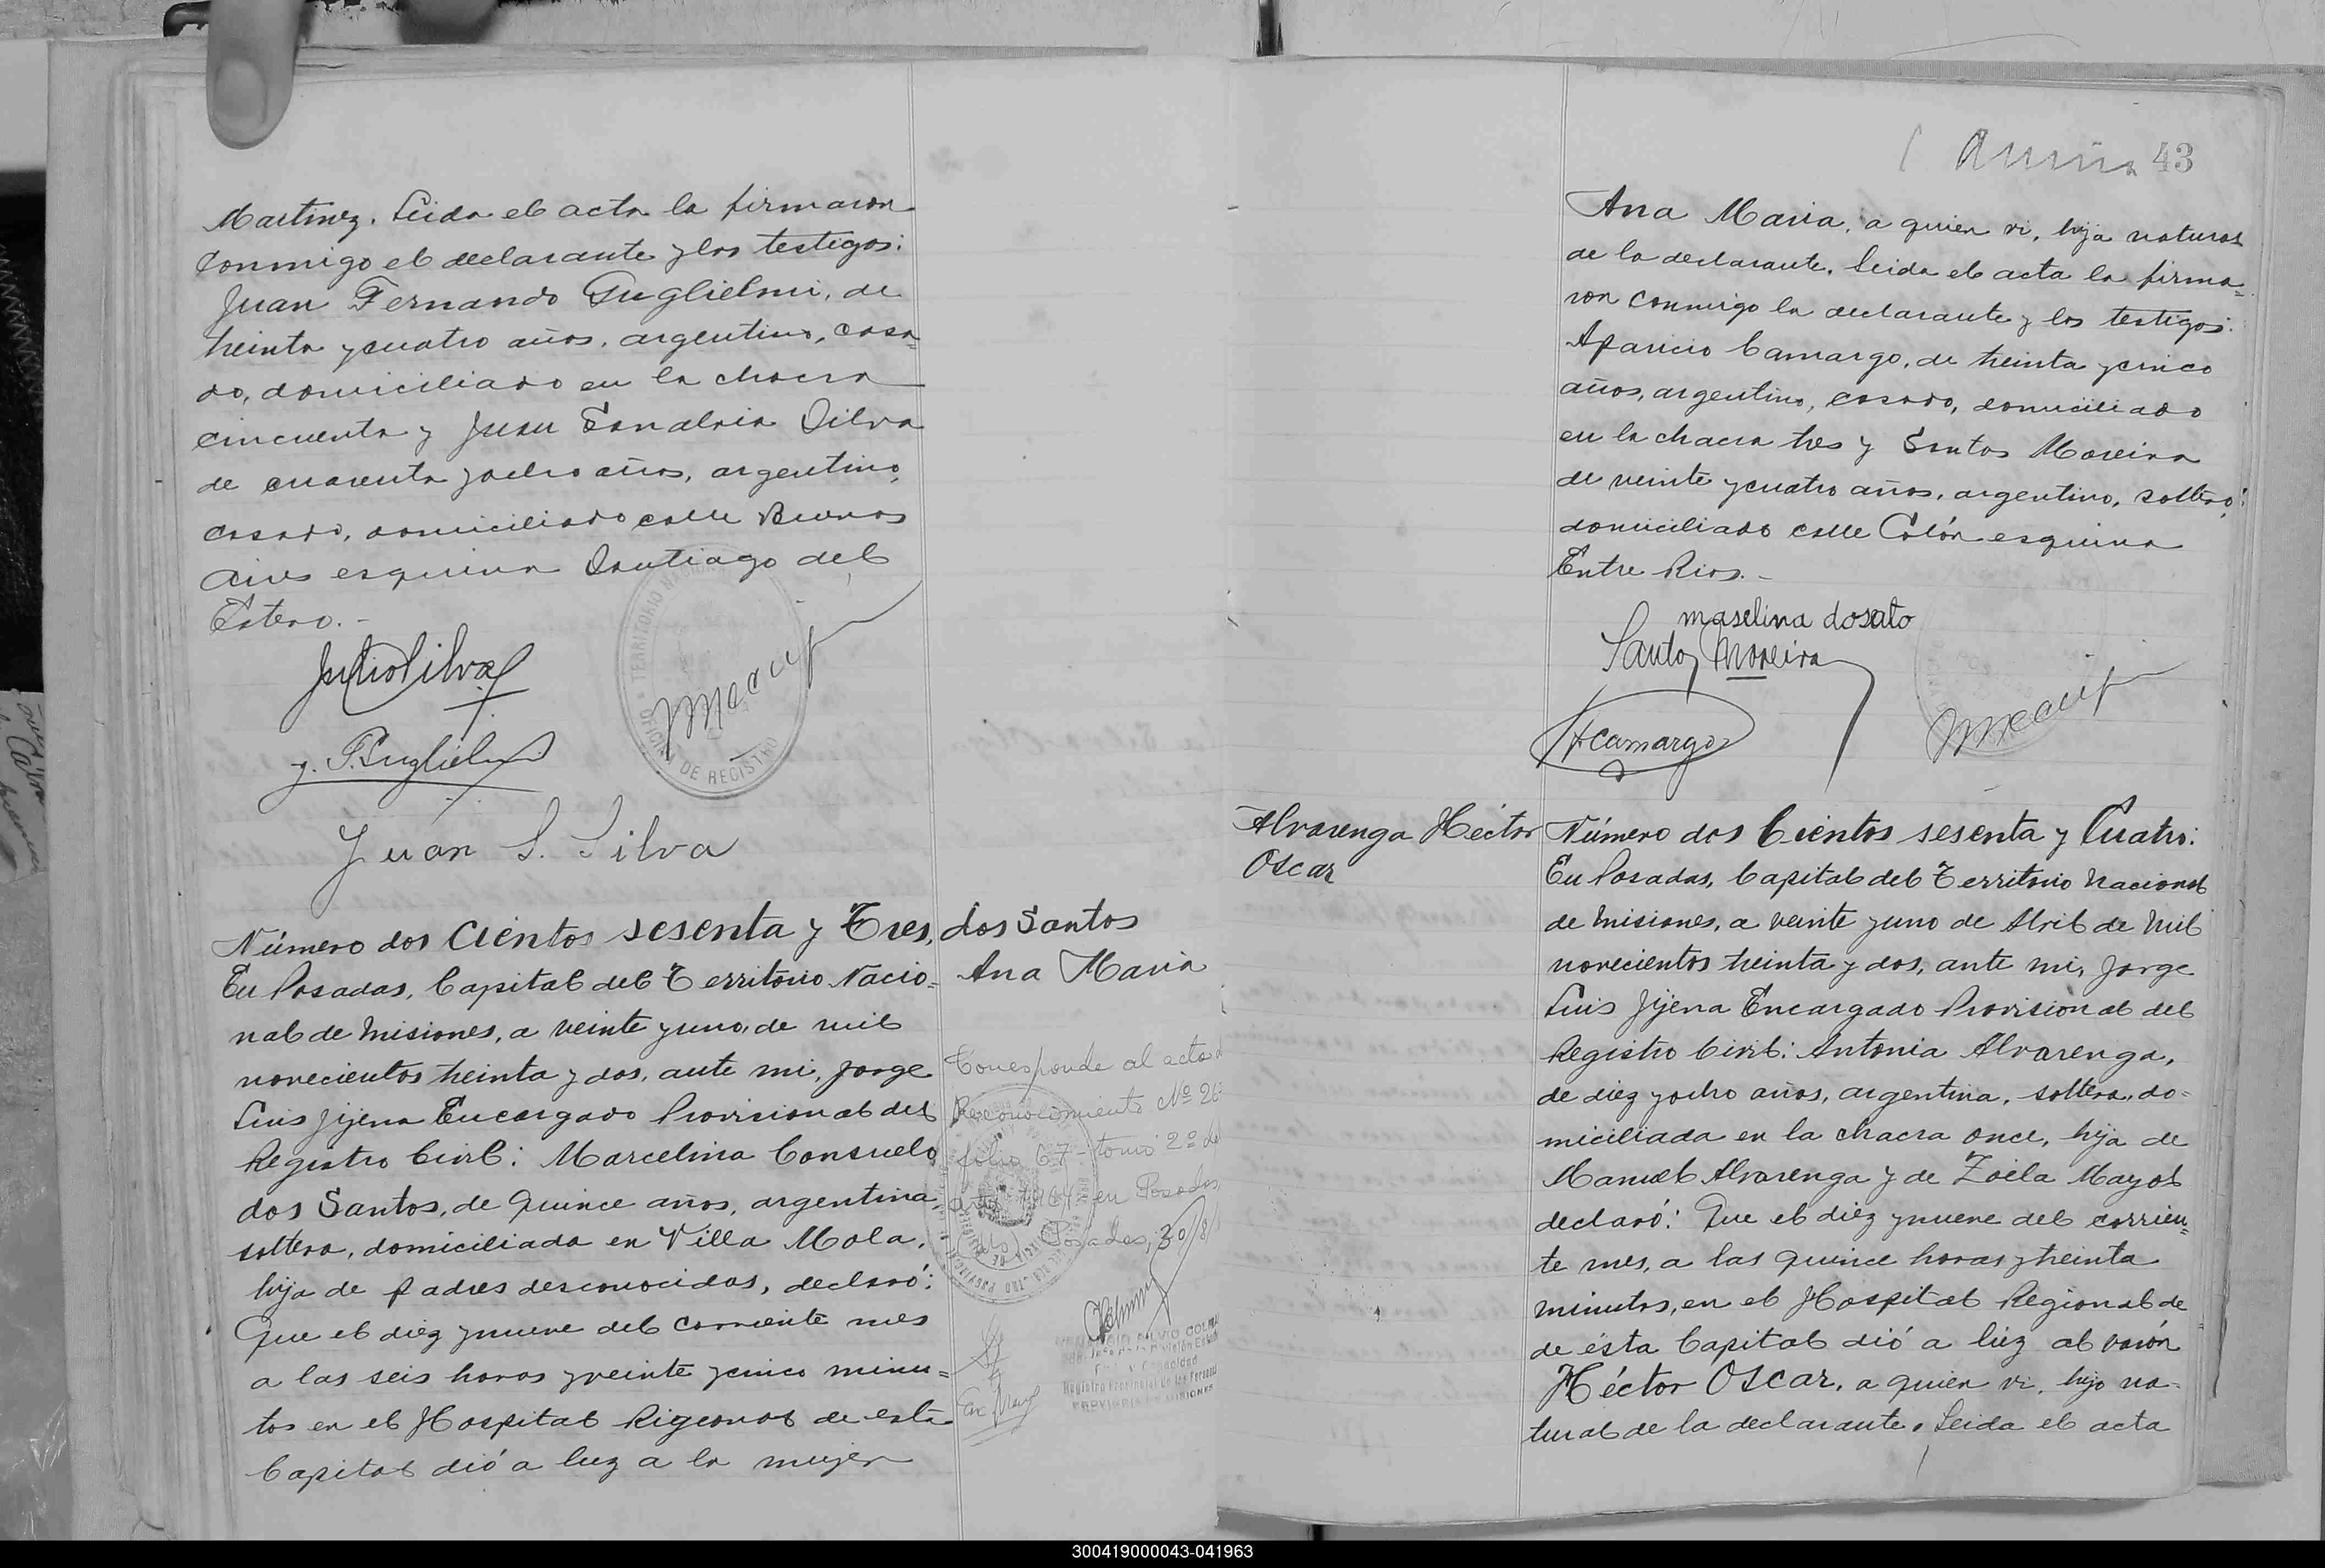 Martinez. Leida el acta la firmaron
conmigo el declarante y los testigos:
Juan Fernando Guglielmi, de
treinta y cuatro años, argentino, casa=
do, domiciliado en la chacra
cincuenta y Juan Sandalio Silva
de cuarenta y ocho años, argentino,
casado, domiciliado calle Buenos
Aires esquina Santiago del
Estero.-
Julio Silva
J. F. Guglielmi
Juan S. Silva
TERRITORIO
OFICINA DE REGISTRO
Número dos cientos sesenta y Tres,
En Posadas, Capital del Territorio Nacio=
nal de Misiones, a veinte y uno, de mil
novecientos treinta y dos, ante mi, Jorge
Luis Jijena Encargado Provisional del
Registro Civil: Marcelina Consuelo
dos Santos, de quince años, argentina
soltera, domiciliada en Villa Mola,
hija de padres desconocidos, declaró:
Que el diez y nueve del corriente mes
a las seis horas y veinte y cinco minu=
tos en el Hospital Rigional de esta
Capital dió a luz a la mujer
dos Santos
Ana Maria
Corresponde al acta
Reconocimiento Nº 26
folio 67 - tomo 2º de
en Posadas,
Posadas, 30/8/
43
Ana Maria, a quien vi, hija natural
de la declarante. Leida el acta la firma=
ron conmigo la declarante y los testigos:
Aparicio Camargo, de treinta y cinco
años, argentino, casado, domiciliado
en la chacra tres y Santos Moreira
de veinte y cuatro años, argentino, soltero,
domiciliado calle Colón esquina
Entre Rios.-
maselina dosato
Santos Moreira
A Camargo
Alvarenga Héctor
Oscar
Número dos Cientos sesenta y Cuatro:
En Posadas, Capital del Territorio Nacional
de Misiones, a veinte y uno de Abril de Mil
novecientos treinta y dos, ante mi, Jorge
Luis Jijena Encargado Provisional del
Registro Civil: Antonia Alvarenga,
de diez y ocho años, argentina, soltera, do-
miciliada en la chacra once, hija de
Manuel Alvarenga y de Zoila Mayol
declaró: Que el diez y nueve del corrien=
te mes, a las quince horas y treinta
minutos, en el Hospital Regional de
de ésta Capital dió a luz al varón
Héctor Oscar, a quien vi, hijo na-
tural de la declarante. Leida el acta
300419000043-041963